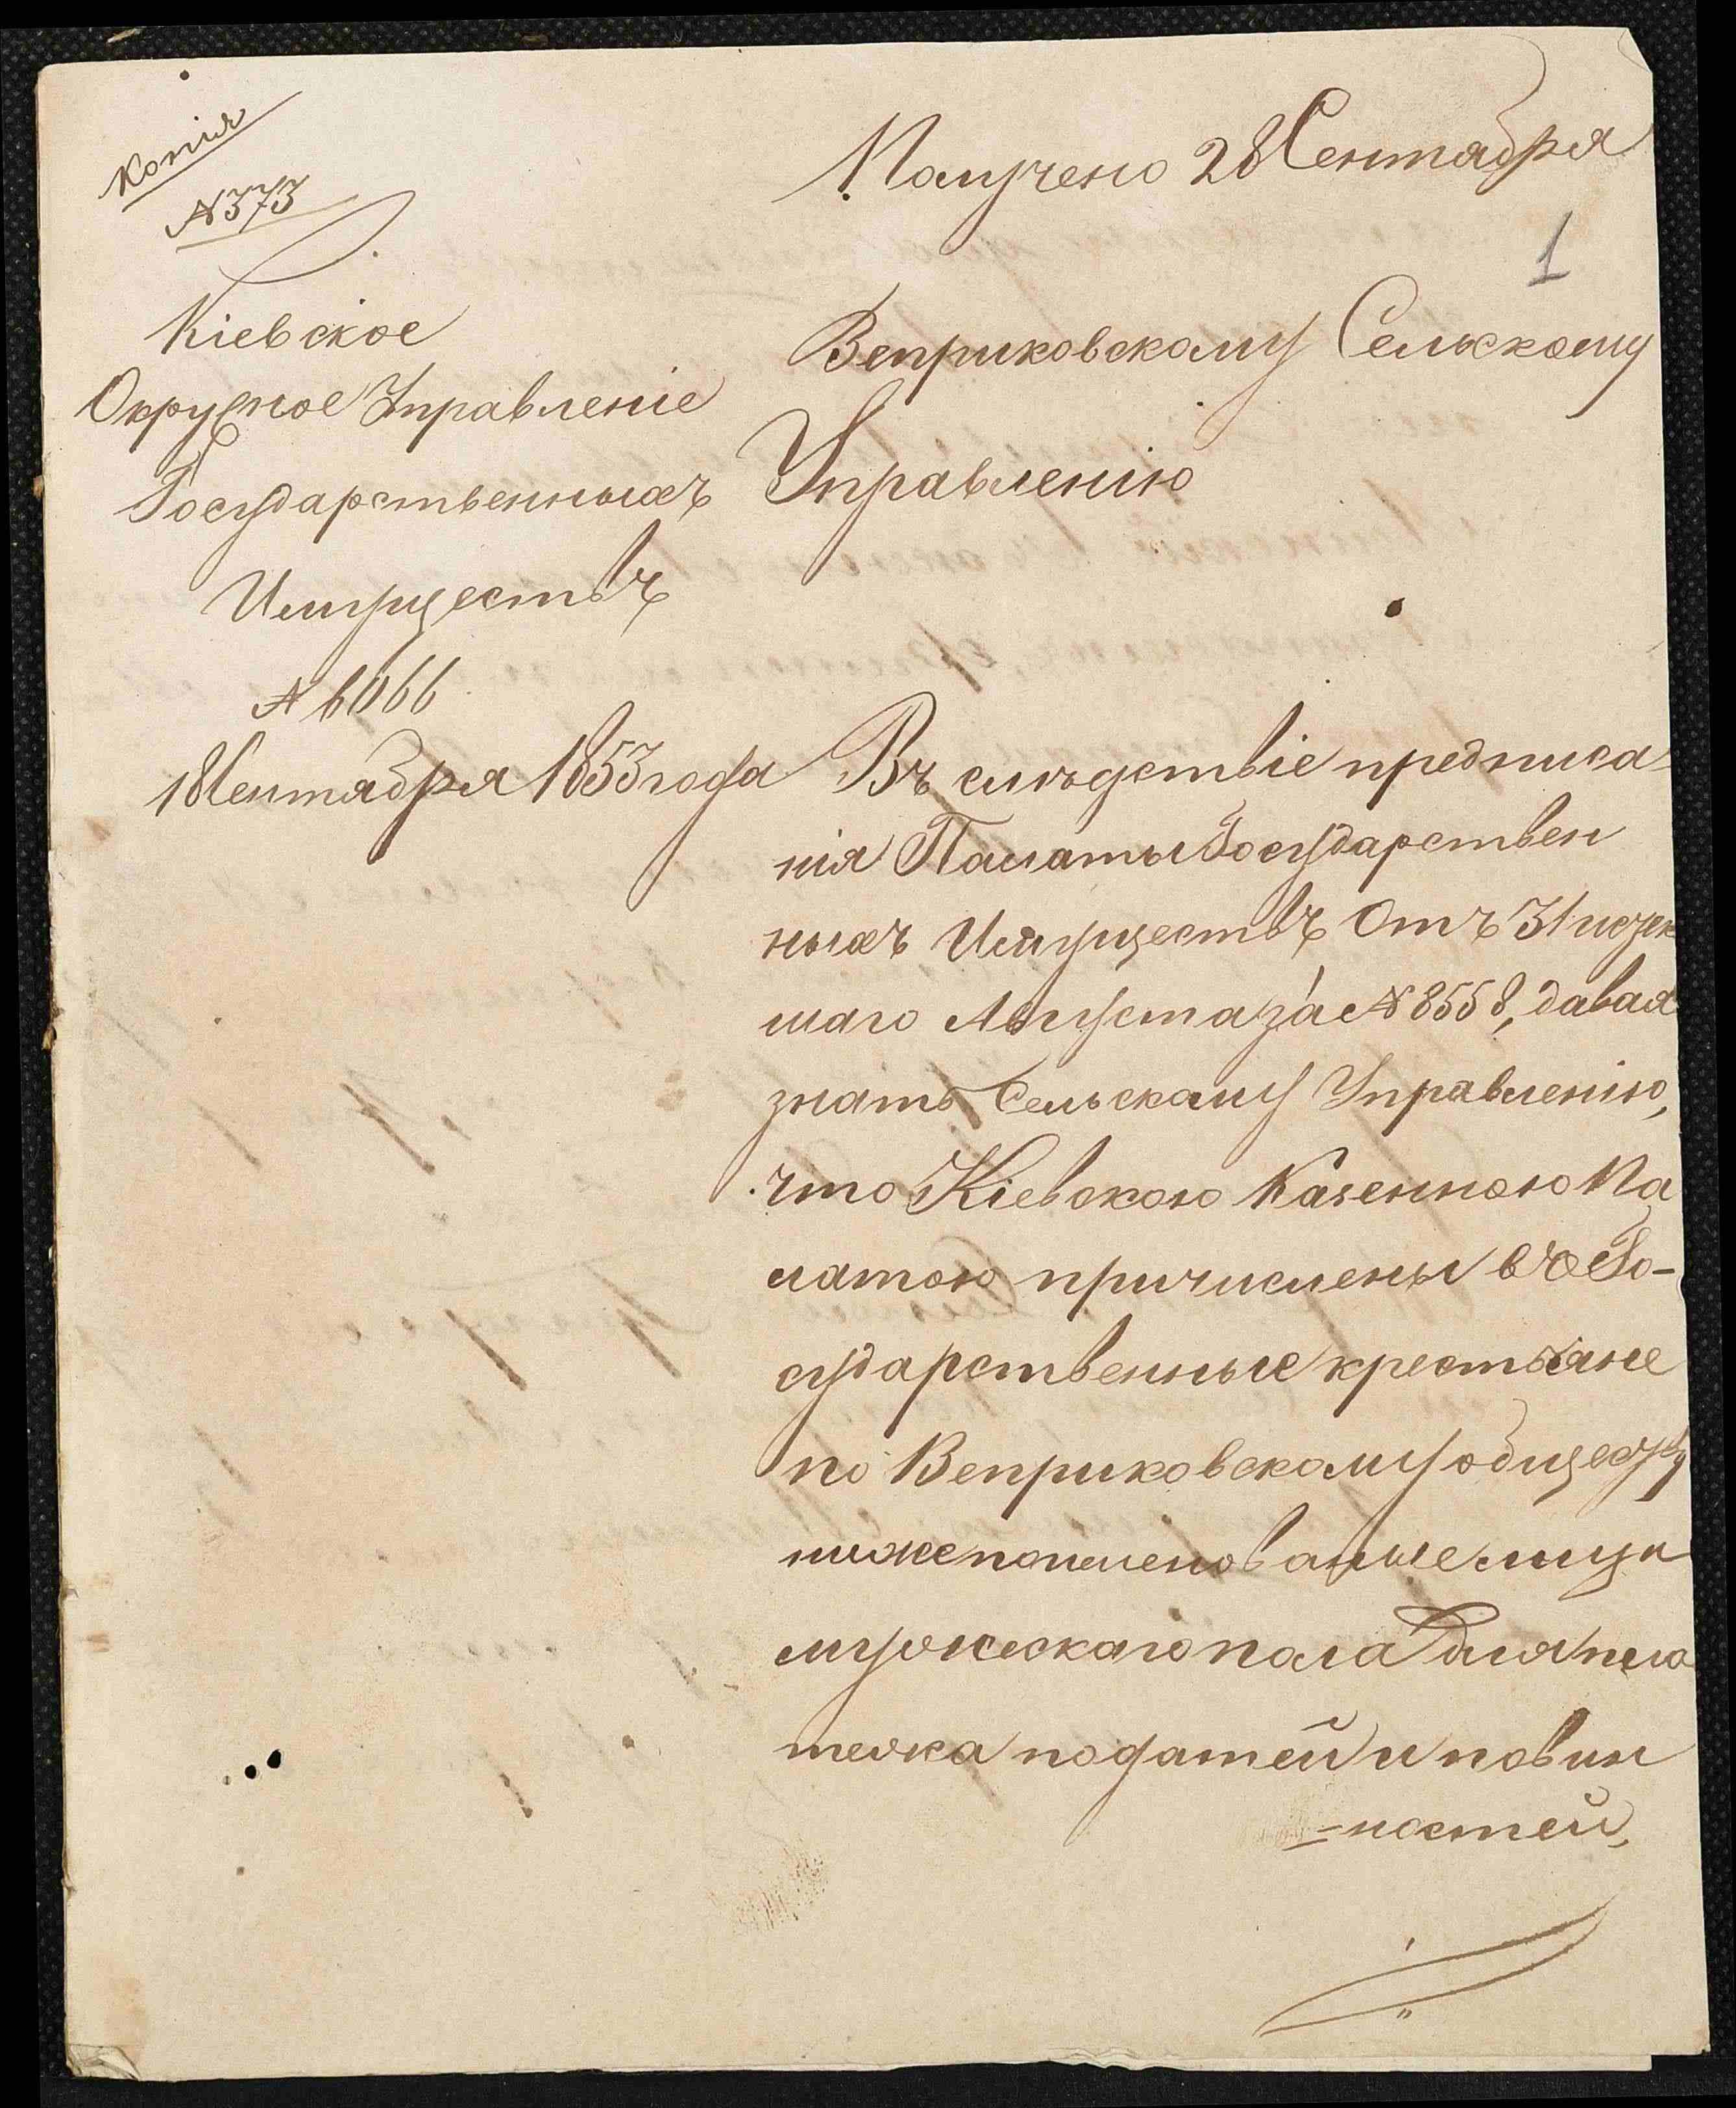 Копія
№373
Получено 28 Сентября
1
Кіевское
Окружное Управленіе
Государственныхъ
Имуществъ
№ 6066
18 Сентября 1853 года
Веприковскому Сельскому
Управленію
Въ слѣдствіе предписа-
нія Палаты Государствен
ныхъ Имуществъ Отъ 31 истек
шаго Августа за №8558, давая
знать Сельскому Управленію,
что Кіевскою Казенною Па
латою причислены въ Го-
сударственные крестьяне
по Веприковскому обществу
нижепоименованные лица
мужескаго пола для пла
тежа податей и повин
-ностей,